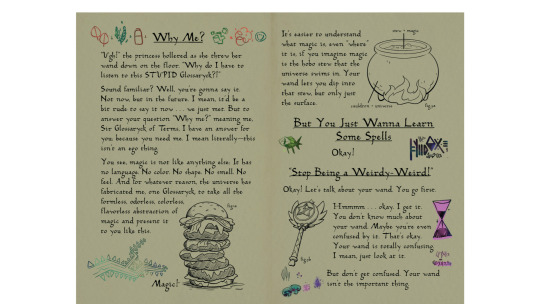 Why Me?
"Ugh!" the princess hollered as she threw her
wand down on the floor. "Why do I have to
listen to this STUPID Glossaryck?!"
Sound familiar? Well, you're gonna say it.
Not now, but in the future. I mean, it'd be a
bit rude to say it now . . . we just met. But to
answer your question "Why me?" meaning me,
Sir Glossaryck of Terms, I have an answer for
you: because you need me. I mean literally—this
isn't an ego thing.
You see, magic is not like anything else. It has
no language. No color. No shape. No smell. No
feel. And for whatever reason, the universe has
fabricated me, one Glossaryck, to take all the
formless, odorless, colorless,
flavorless abstraction of
magic and present it
to you like this.
Magic!
It's easier to understand
what magic is, even "where"
it is, if you imagine magic
is the hobo stew that the
universe swims in. Your
wand lets you dip into
that stew, but only just
the surface.
stew = magic
cauldron = universe
But You Just Wanna Learn
Some Spells
Okay!
"Stop Being a Weirdy-Weird!"
Okay! Let's talk about your wand. You go first.
Hmmmm . . . . okay, I get it.
You don't know much about
your wand. Maybe you're even
confused by it. That's okay.
Your wand is totally confusing.
I mean, just look at it.
But don't get confused. Your wand
isn't the important thing.